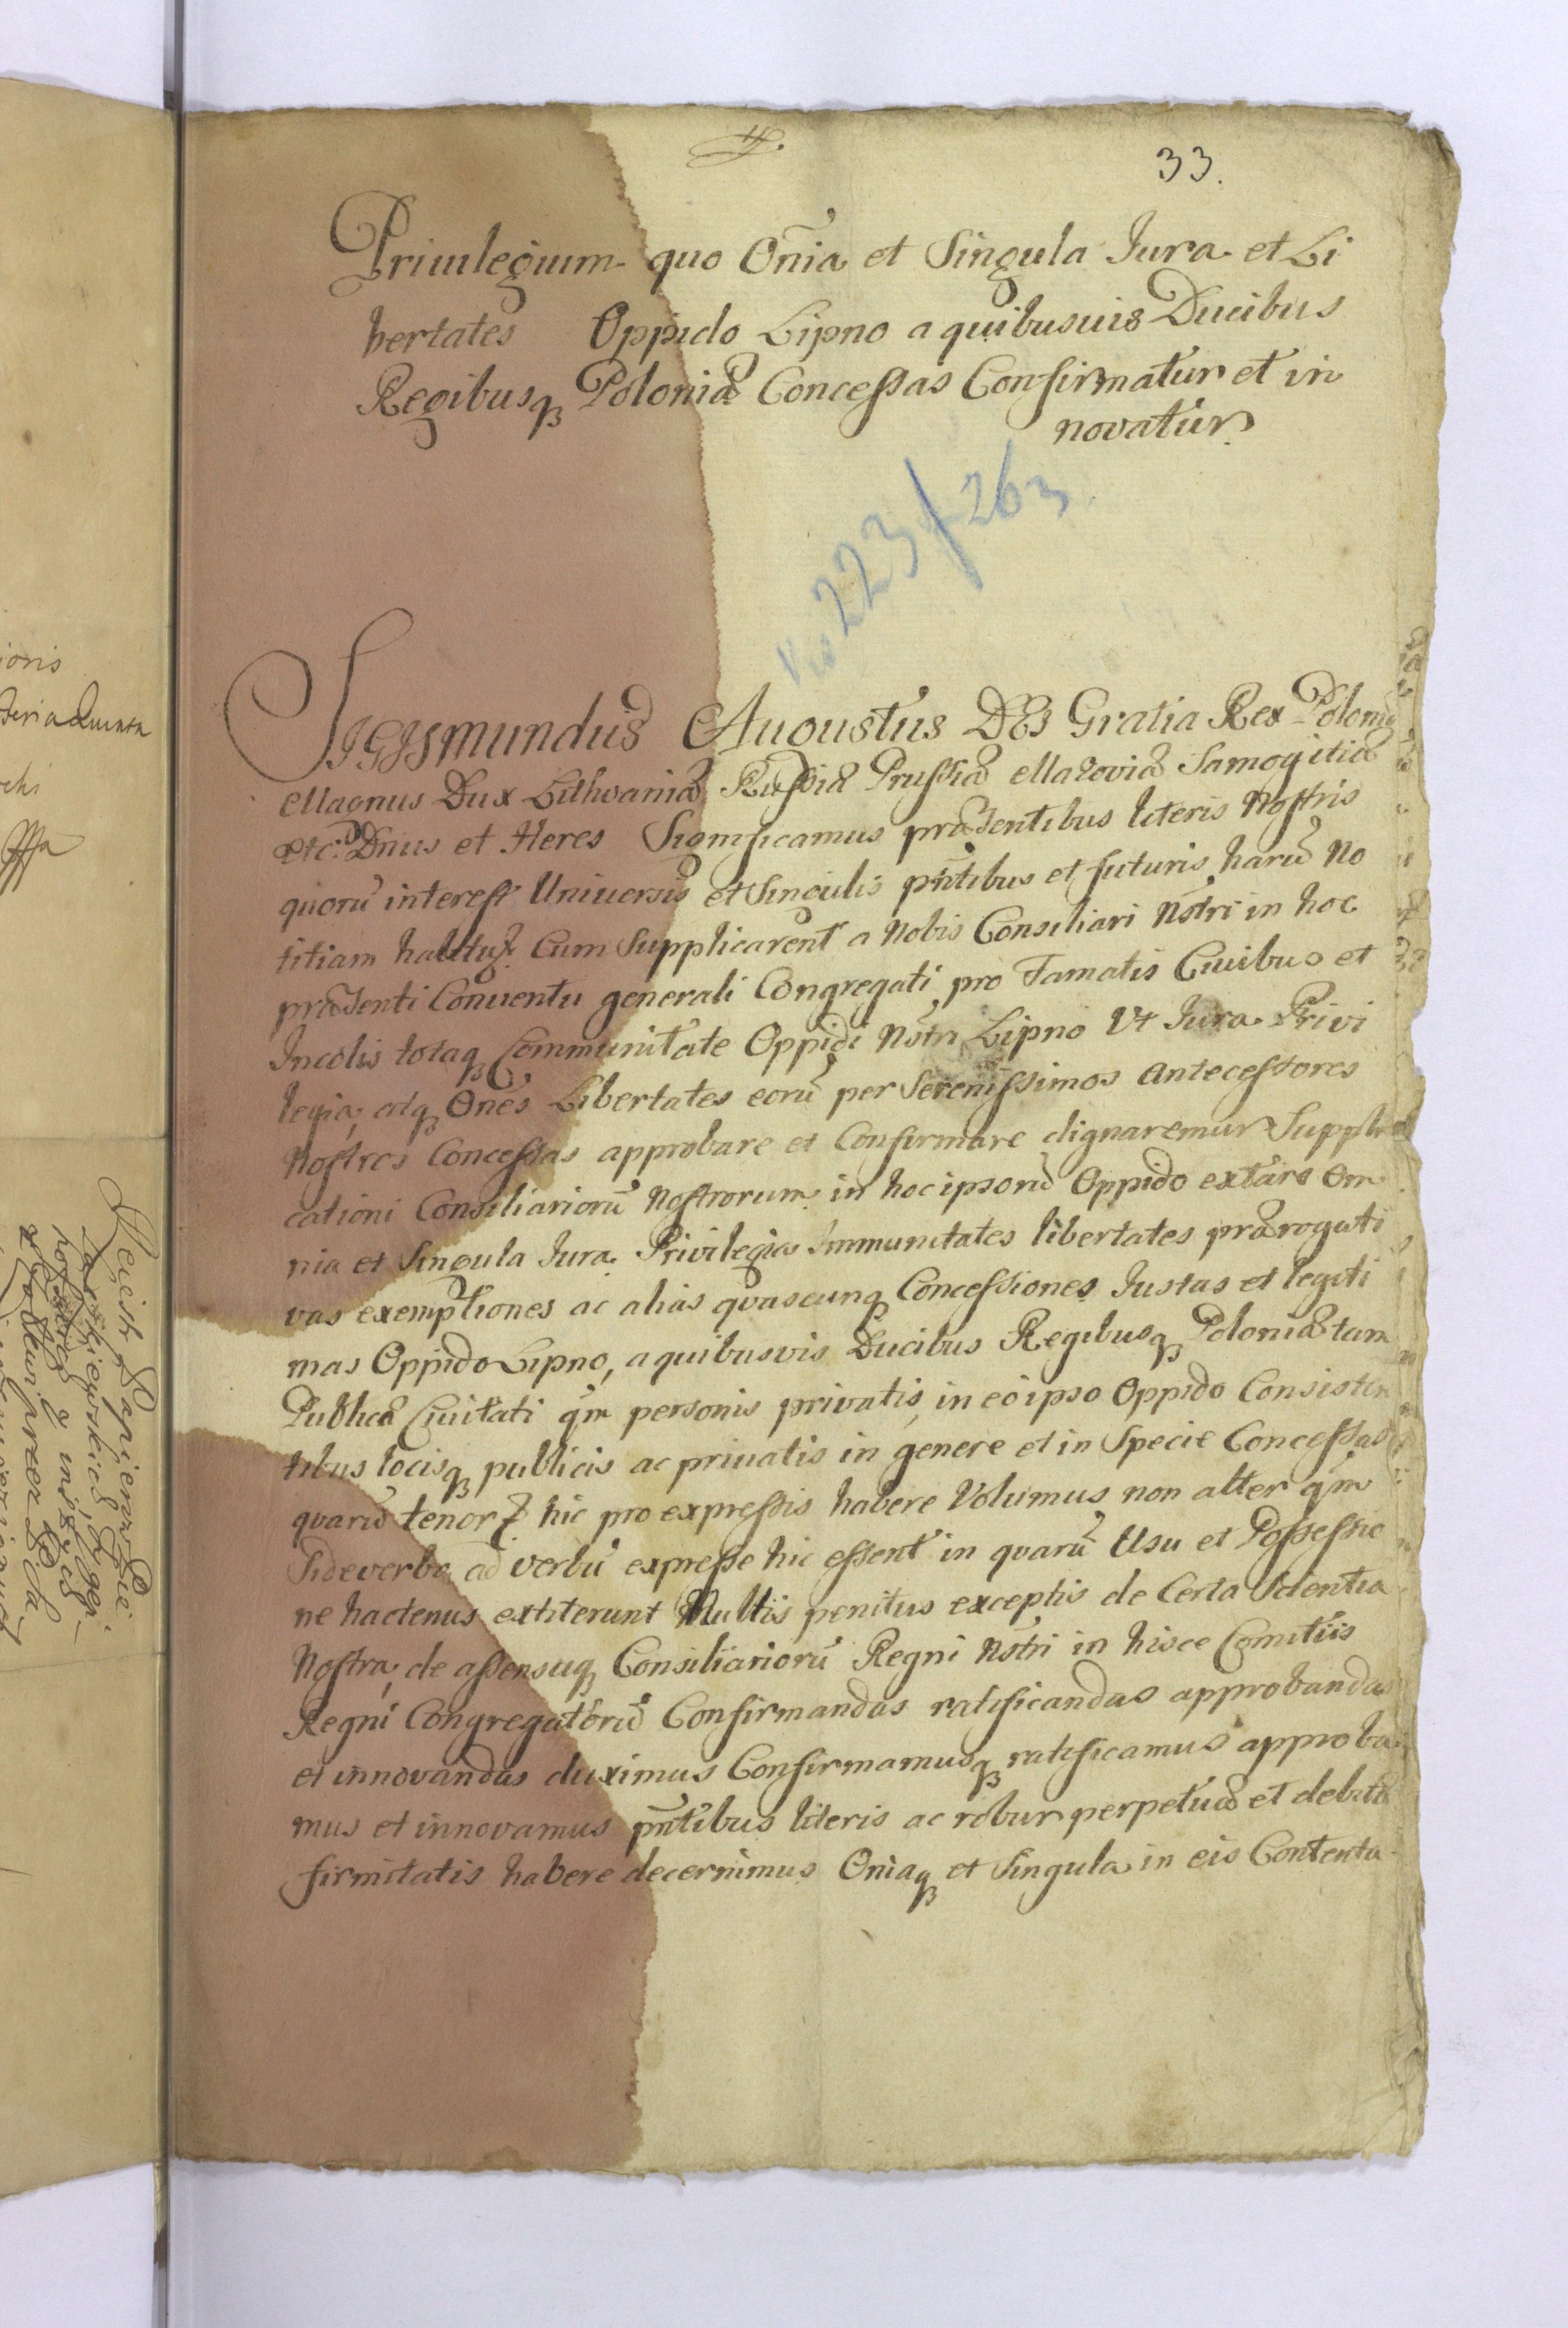 33.
Priuilegium quo Om̃ia et Singula Jura et Li
bertates Oppido Lipno a quibusuis Ducibus
Regibusq Poloniæ Concessas Confirmatur et in
novatur
223 f 263
Sigismundus Augustus Dei Gratia Rex Poloniæ
Magnus Dux Lithvaniæ Russiæ Prussiæ Mazoviæ Samogitiæ
etc. Dnus et Heres Significamus præsentibus literis Nostris
quorū interest Universis et Singulis pñtibus et futuris, harū No
titiam habitur. Cum Supplicarent a Nobis Consiliari Nr̃tri in hoc
præsenti Conuentu generali Congregati pro Famatis Ciuibus et
Incolis totaq Communitate Oppidi Nstri Lipno Vt Jura Privi
legia, atq Ones Libertates eorū per Serenissimos Antecessores
Nostros Concessas approbare et Confirmare dignaremur Suppli
cationi Consiliariorū Nostrorum in hoc ipsorū Oppido extare Om
nia et Singula Jura Privilegia Immunitates libertates prærogati
vas exemptiones ac alias qvascunq Concessiones Justas et legiti
mas Oppido Lipno, a quibusvis Ducibus Regibusq Poloniæ tam
Publicæ Ciuitati qm personis privatis, in eo ipso Oppido Consisten
tibus locisq publicis ac priuatis in genere et in Specie Concessas
quarū tenor hic pro expressis habere Volumus non alter qm
Si de verbo ad verbū expresse hic essent in qvarū Usu et Possessio
ne hactenus extiterunt Nullis penitus exceptis de Certa Scientia
Nostra, de assensuq Consiliariorū Regni Nstri in hisce Comitiis
Regni Congregatorū Confirmandas ratificandas approbandas
et innovandas duximus Confirmamusq ratificamus approba
mus et innovamus pñtibus literis ac robur perpetuæ et debitæ
firmitatis habere decernimus Oniaq et Singula in eis Contenta